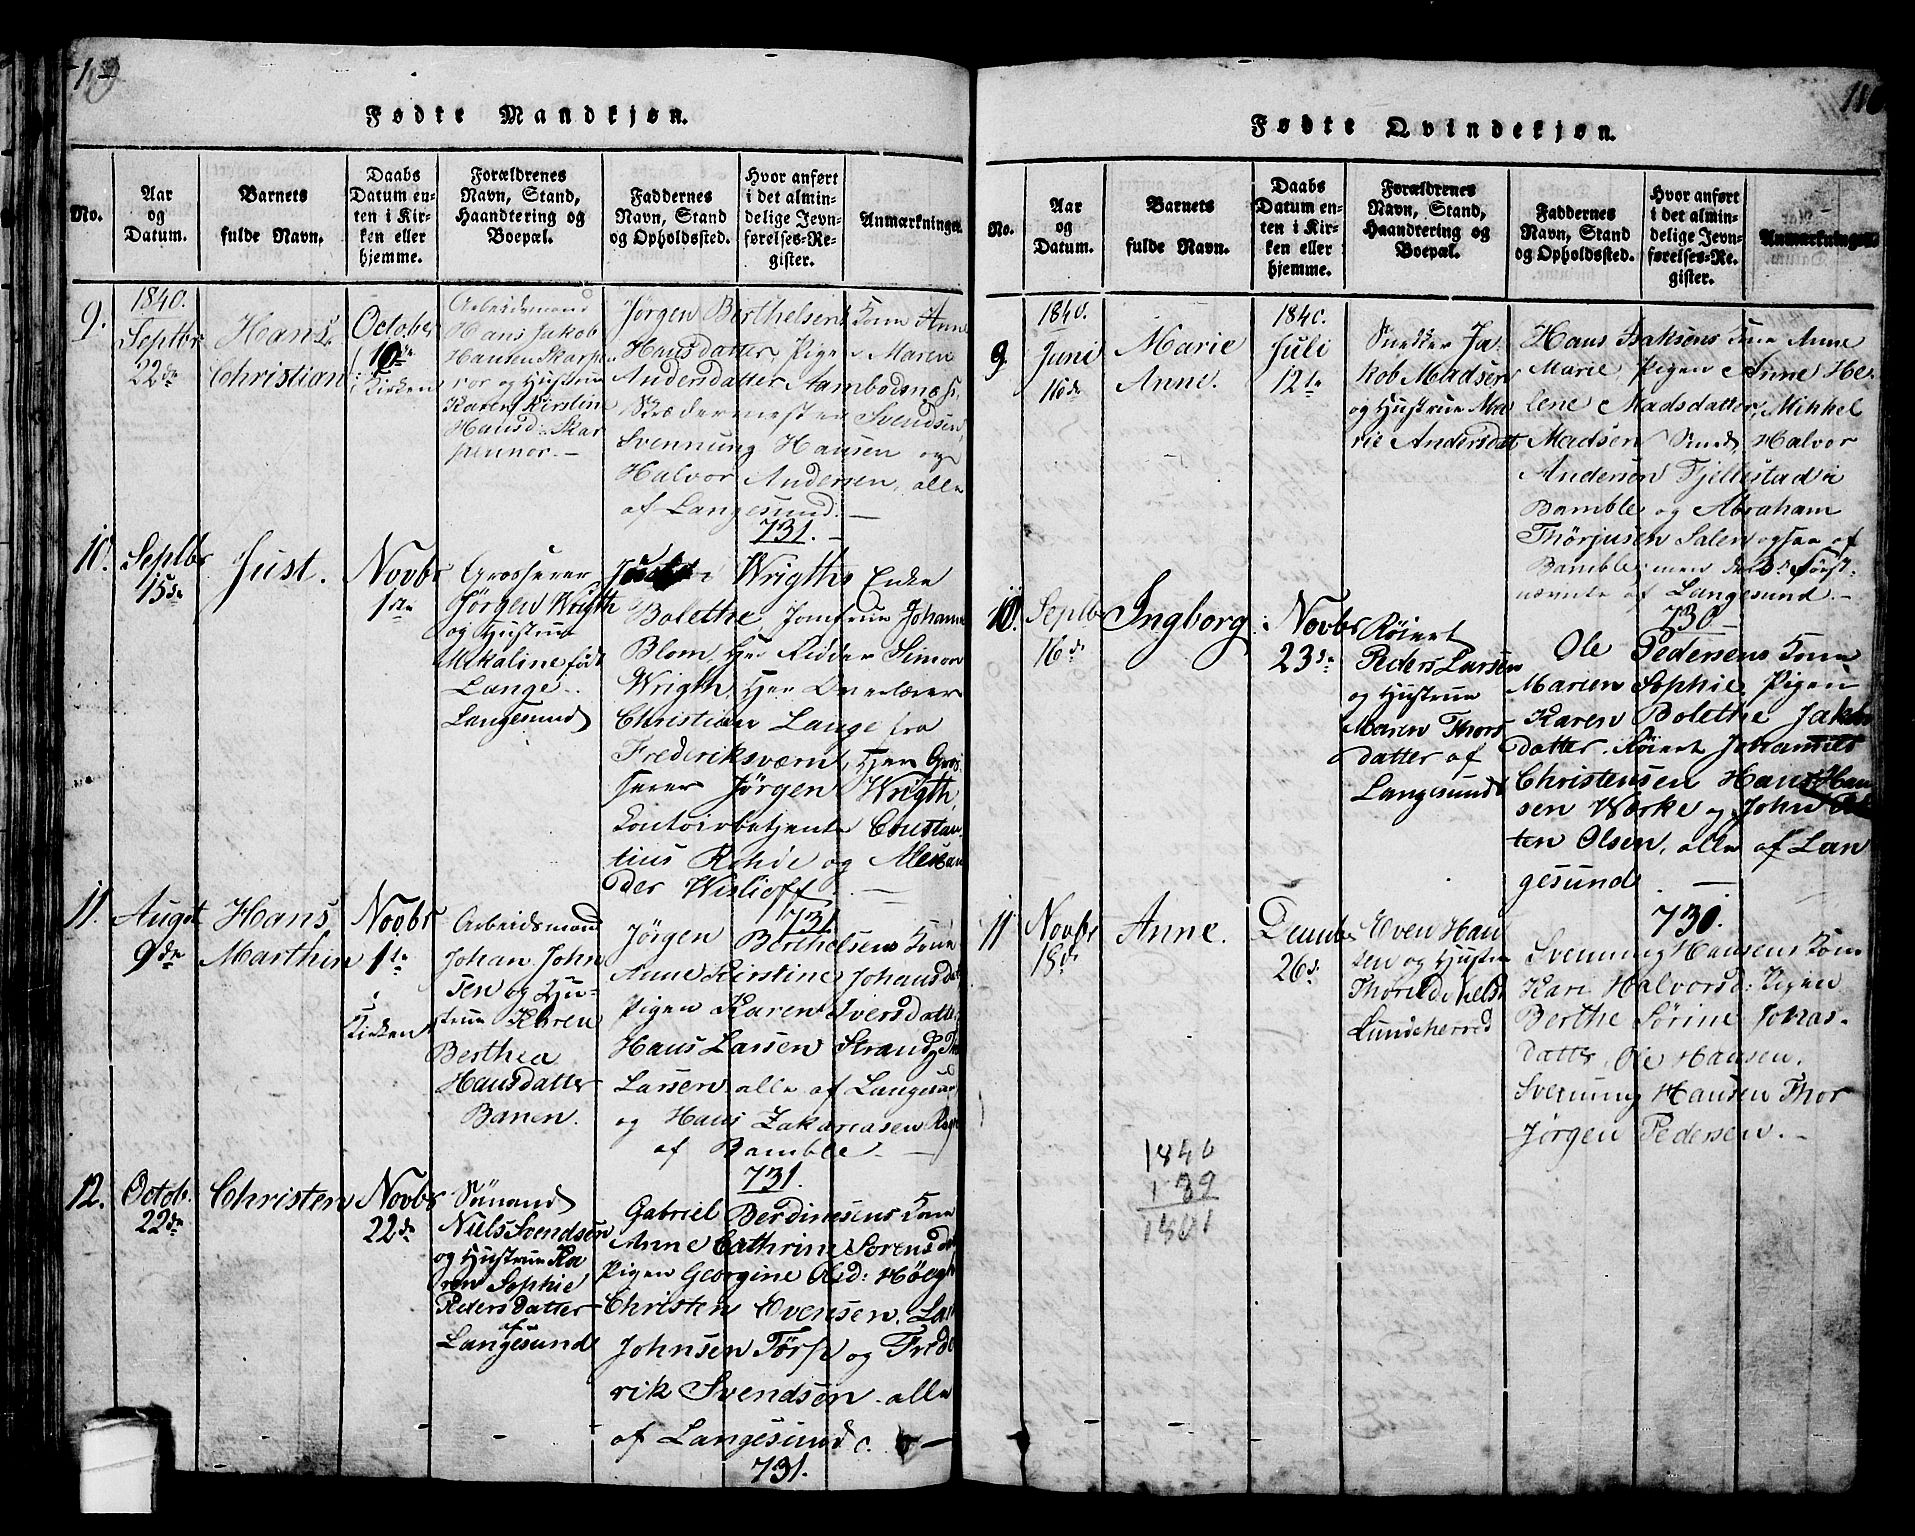 Fødte Mandkjøn.
No.
Aar
og
Datum.
Barnets
fulde Navn.
Daabs
Datum en-
ten i Kir-
ken eller
hjemme.
Forældrenes
Navn, Stand,
Haandtering og
Boepæl.
Faddernes
Navn, Stand
og Opholdssted.
Hvor anført
i det almin-
delige Jevn-
førelses-Re-
gister.
Anmærkninger.
9.
1840.
Septbr
22de
Hans
Christian
October
10de
i Kirken
Arbeidsmand
Hans Jakob
Hansen Skarp
nor og Hustrue
Karen Kirstine
Hansd: Skar
pennor.
Jørgen Berthelsens Kone Anne
Hansdatter, Pigen Maren
Andersdatter
Svendsen,
Svennung Hansen og
Halvor Andersen, alle
af Langesund.
731.
10.
Septbr
15de
Just.
Novbr
1ste
Grosserer
Jørgen Wrigth
og Hustrue
Mikaline født
Lange
Langesund
Wrigths Enke
Bolethe, Jomfrue Johanne
Blom, Hr Ridder Simon
Wrigth, Herr Overlærer
Christian Lange fra
Frederiksværn, Herr Gros-
serer Jørgen Wrigth,
Contoirbetjente Constan
tius Rohde og Alexan
der Wisløff.
731.
11.
Augst
9de
Hans
Marthin
Novbr
1ste
i
Kirken
Arbeidsmand
Johan John
sen og Hu-
strue Karen
Berthea
Hansdatter
Banen.
Jørgen Berthelsens Kone
Anne Kirstine Johansdat
Pigen Karen Iversdatter
Hans Larsen Strand,
Larsen alle af Langesund
og Hans Zakariasen
af Bamble.
731.
12.
Octob.
22de
Christen
Novbr
22de
Sømand
Niels Svendsen
og Hustrue Ka
ren Sophie
Pedersdatter
af
Langesund
Gabriel Berdinesens Kone
Anne Cathrine Sorensdat
Pigen Georgine Olsd: Høegh
Christen Evensen, Lars
Johnsen Tørp og Frede
rik Svendsen alle
af Langesund.
731.
Fødte Qvindekjøn.
No.
Aar
og
Datum.
Barnets
fulde Navn.
Daabs
Datum en-
ten i Kir-
ken eller
hjemme.
Forældrenes
Navn, Stand,
Haandtering og
Boepæl.
Faddernes
Navn, Stand
og Opholdssted.
Hvor anført
i det almin-
delige Jevn-
førelses-Re-
gister.
Anmærkninger.
9
1840.
Juni
16de
Marie
Anne.
1840.
Juli
12te
Snedker Ja-
kob Madsen
og Hustrue Ma
rie Andersdat
Hans Isaksens Kone Anne
Marie, Pigen Anne He-
lene Madsdatter, Mikkel
Madsen Smed, Halvor
Anderson Fjellestad i
Bamble og Abraham
Thorjusen Salen ogsaa af
Bamble; men de 3de Først-
nævnte af Langesund.
730
10.
Septbr
16de
Ingborg
Novbr
23de
Røiert
Peders Larsen
og Hustrue
Maren Thors
datter af
Langesund
Ole Pedersens Kone
Maren Sophie, Pigen
Karen Bolethe Jakobs
datter. Røiert Johannes
Christensen Hans Han
sen Wærke og John
ten Olsen, alle af Lan
gesund.
730.
11
Novbr
18de
Anne.
Decmbr
26de
Even Han
sen og Hustrue
Lundeherred
Svennung Hansens Kone
Kari Halvorsd: Pigen
Berthe Sørine Jonas-
datter, Ole Hansen,
Svennung Hansen Thor
Jørgen Pedersen.
1840
1 39
1801